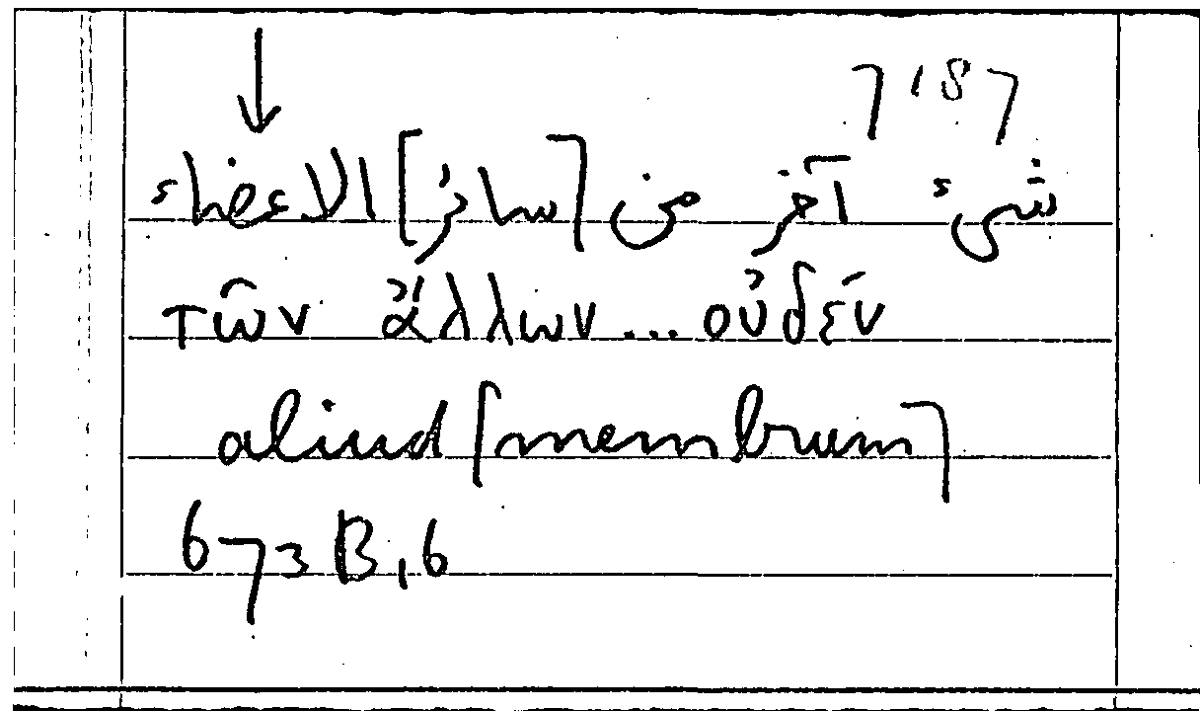 7187
شىء آخر من [سائر] الاعضاء
τῶν ἄλλων ... οὐδέν
aliud [membrum]
673B,6